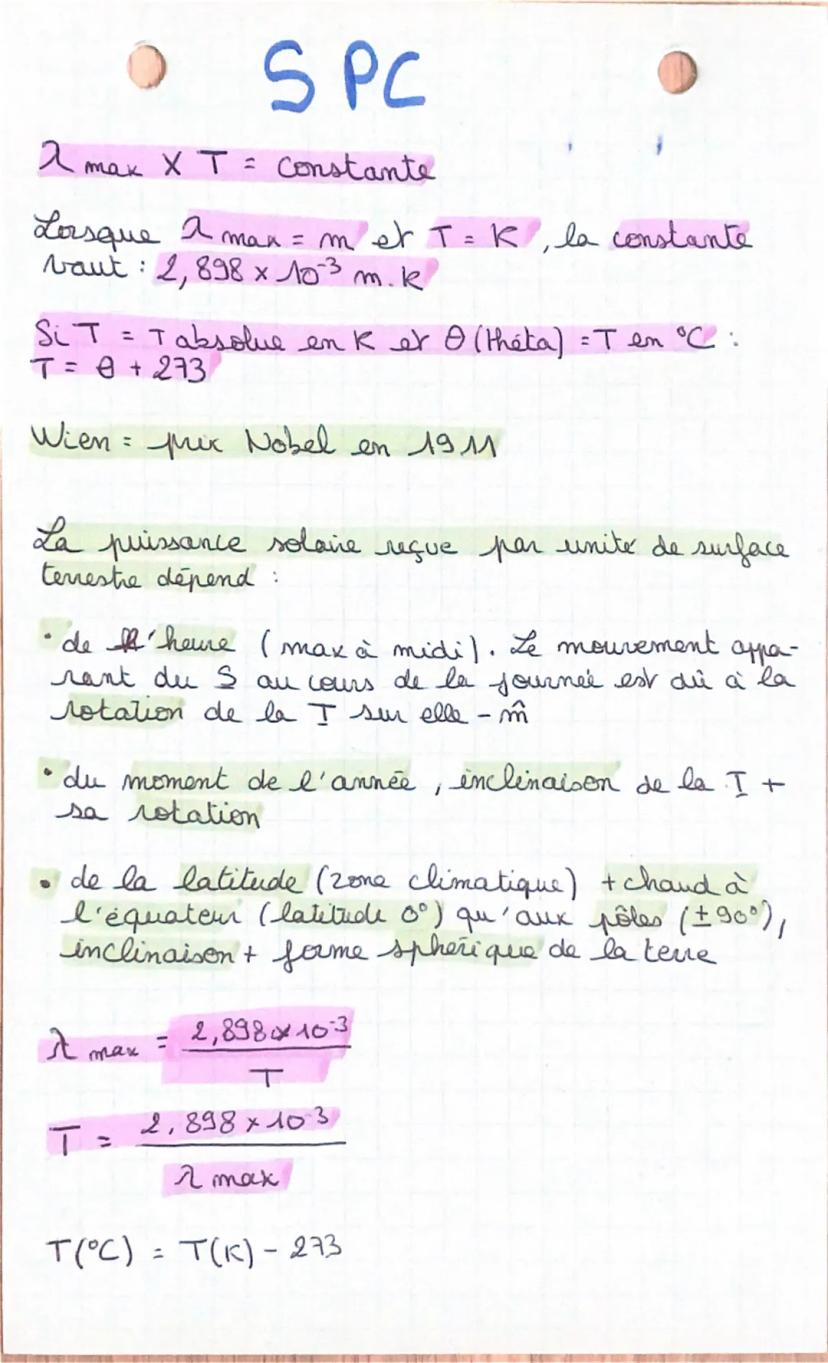 SPC
λ max X T = constante
Lorsque λ max = m et T = K, la constante
vaut : 2,898 × 10⁻³ m.k
Si T = T absolue en K et θ (thêta) = T en °C :
T = θ + 273
Wien = prix Nobel en 1911
La puissance solaire reçue par unité de surface
terrestre dépend :
• de l'heure (max à midi). Le mouvement appa-
rant du S au cours de la journée est dû à la
rotation de la T sur elle-m̂
• du moment de l'année, inclinaison de la T +
sa rotation
• de la latitude (zone climatique) + chaud à
l'équateur (latitude 0°) qu'aux pôles (±90°),
inclinaison + forme sphérique de la terre
λ max = 2,898 × 10⁻³
T
T = 2,898 × 10⁻³
λ max
T(°C) = T(K) - 273